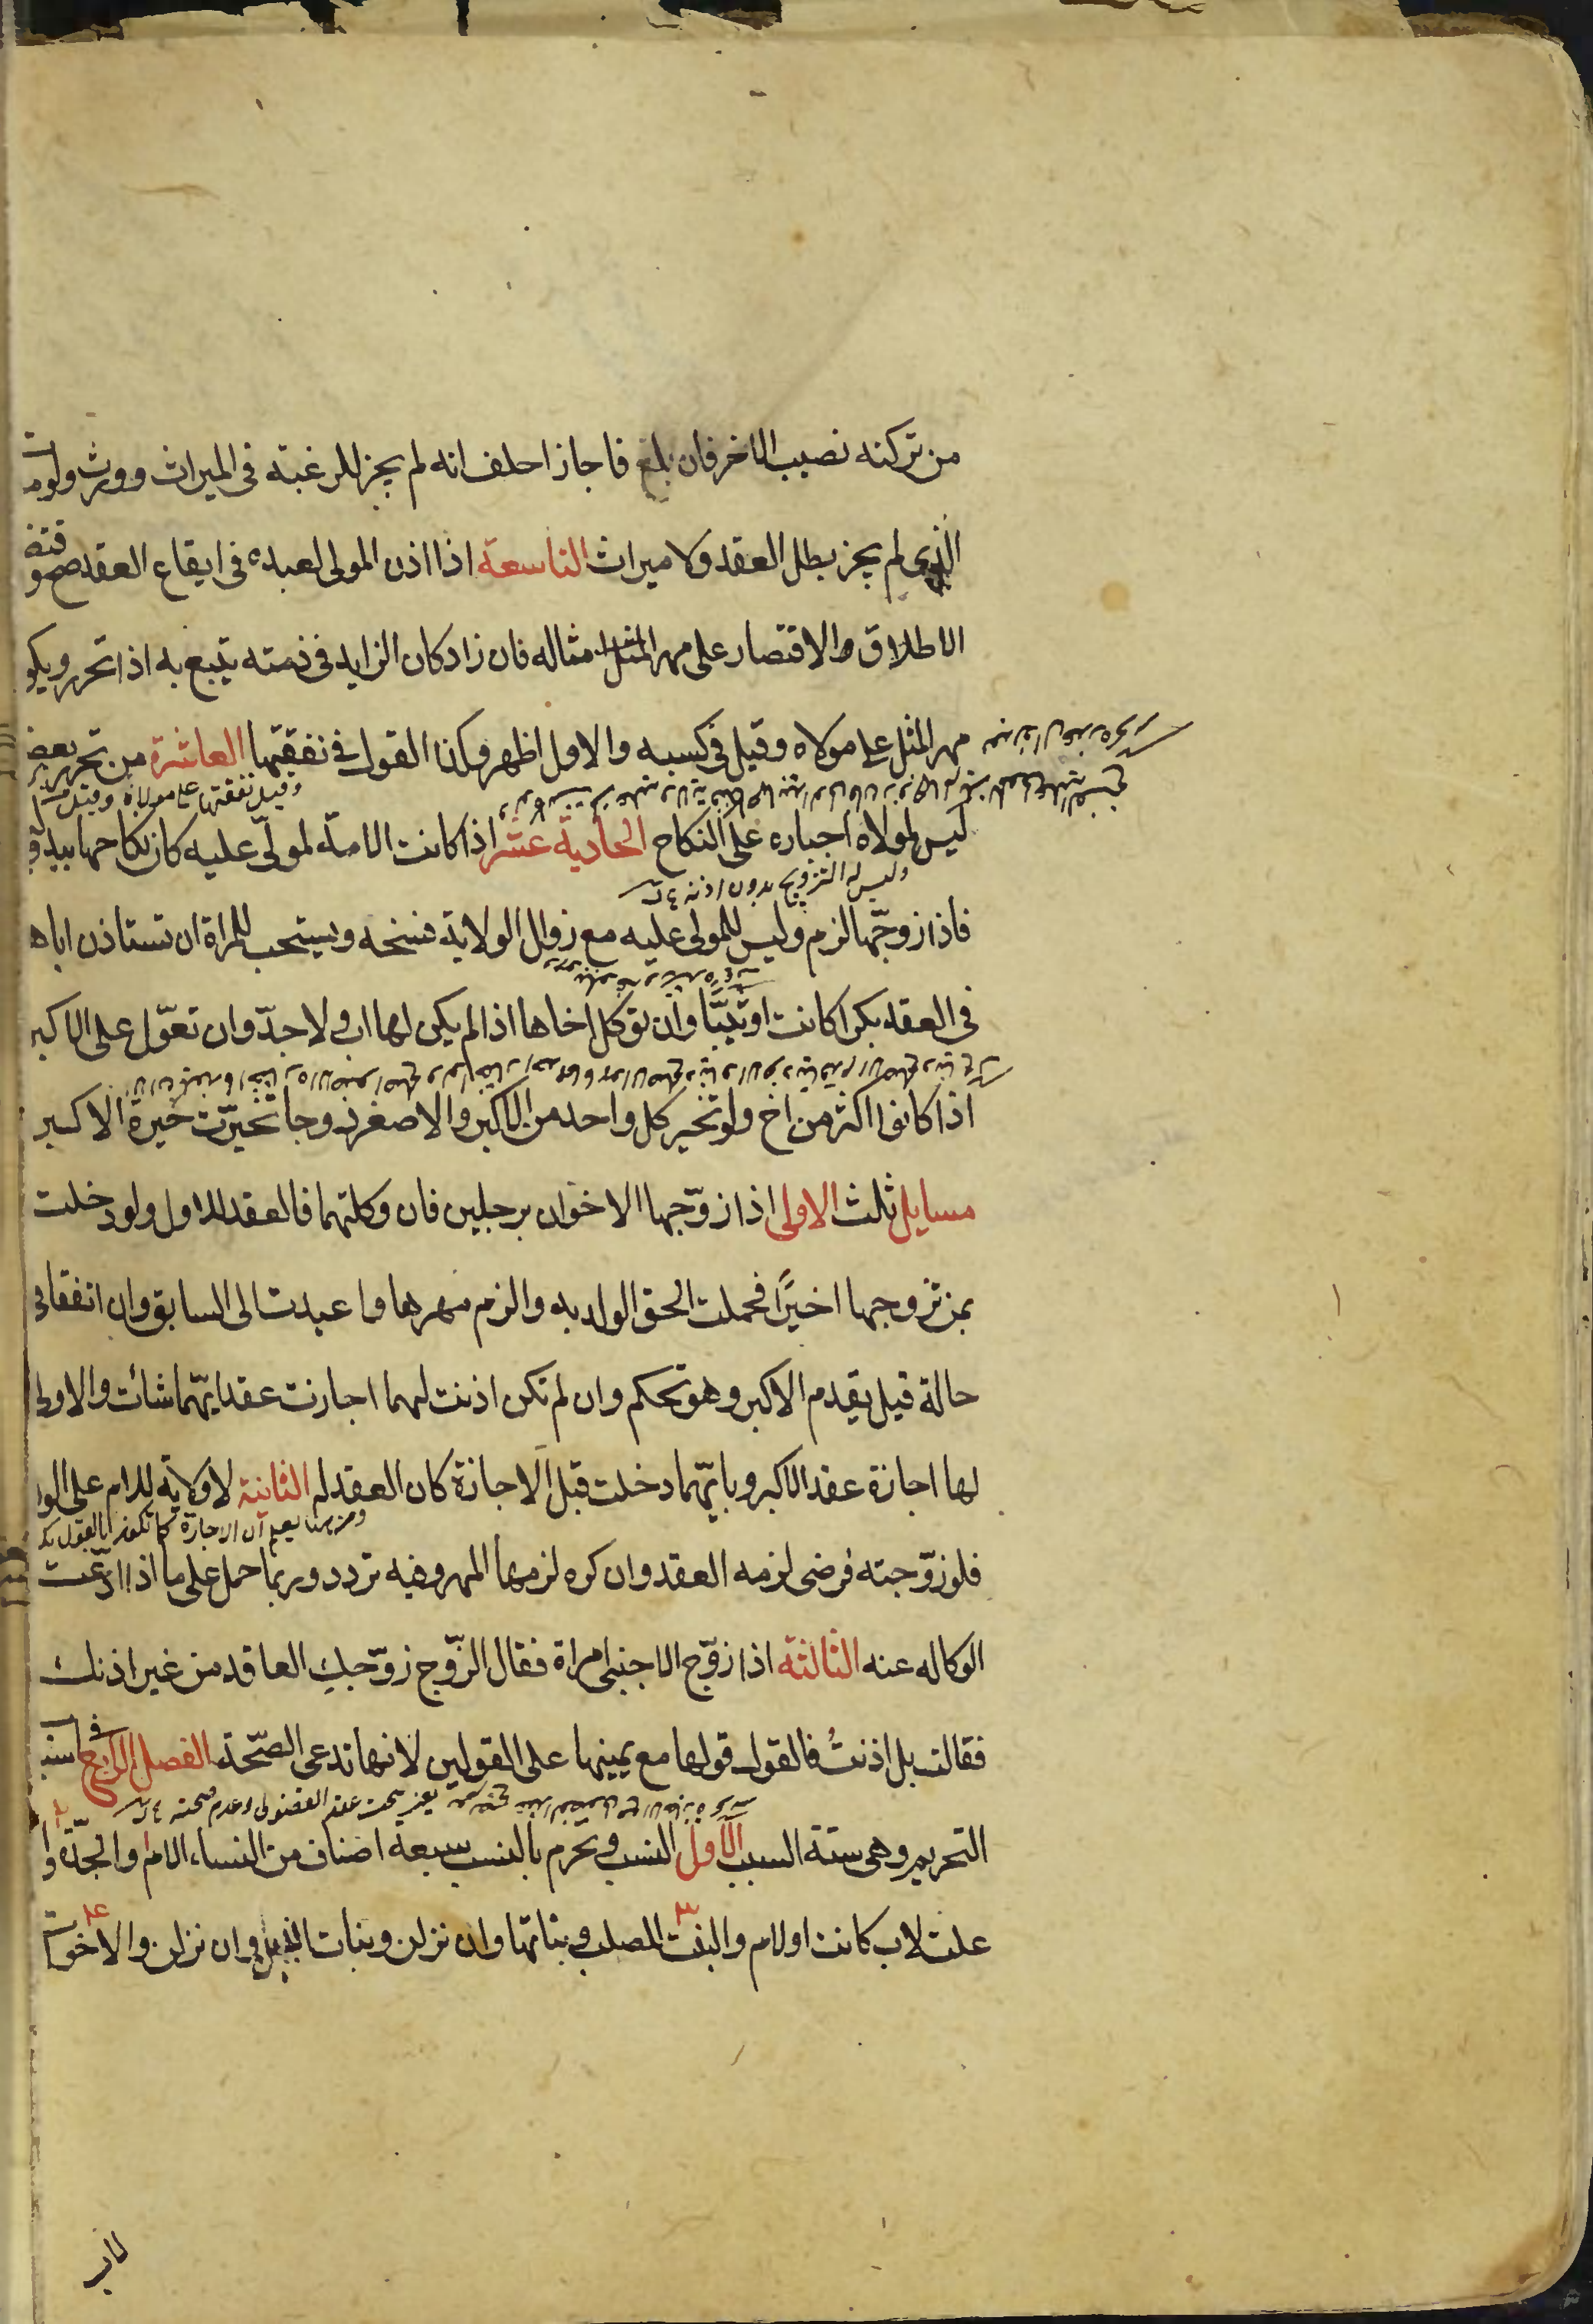 من تركته نصيب الاخر فان بلغ فاجاز احلف انه لم يجز للرغبة فى الميراث وورث ولومات
الذى لم يجز بطل العقد ولا ميراث التاسعة اذا اذن المولى لعبده فى ايقاع العقد صح و
الاطلاق والاقتصار على مهر المثل مثاله فان زاد كان الزايد فى ذمته يتبع به اذا تحرر ويكو
مهر المثل على مولاه وقيل فى كسبه والاول اظهر وكذا القول فى نفقتها العاشرة من تحرر بعضه
وقيل نفقتها على مولاه وقيل
ليس لمولاه اجباره على النكاح الحادية عشر اذا كانت الامة لمولى عليه كان نكاحها بيد
وليس له التزويج بدون اذنه
فاذا زوّجها لزم وليس للمولى عليه مع زوال الولاية فسخه ويستحب للمراة ان تستاذن اباها
فى العقد بكرا كانت او ثيبًا وان توكل اخاها اذا لم يكن لها اب ولا جدّ وان تعوّل على الاكبر
اذا كانوا اكثر من اخ ولو تخير كل واحد من الاكبر والاصغر زوجا تخيّرت خيرة الاكبر
مسايل ثلث الاولى اذا زوّجها الاخوان برجلين فان وكلتهما فالعقد للاول ولو دخلت
بمن تزوجها اخيرًا فحملت الحق الولد به والزم مهرها واعيدت الى السابق وان اتفقا فى
حالة قيل يقدم الاكبر وهو تحكم وان لم تكن اذنت لهما اجازت عقد ايّهما شائت والاولى
لها اجازة عقد الاكبر وبايّهما دخلت قبل الاجازة كان العقد له الثانية لا ولاية للام على الو
يعلم ان الاجازة كما تكون بالقول
فلو زوّجته فرضى لزمه العقد وان كره لزمها المهر وفيه تردد وربما حمل على ما اذا ادّعت
الوكاله عنه الثالثة اذا زوّج الاجنبى امراة فقال الزوّج زوّجك العاقد من غير اذنك
فقالت بل اذنتُ فالقول قولها مع يمينها على القولين لانها تدعى الصّحة الفصل الرابع فى اسبا
عقد الفضولى وعدم صحته
التحريم وهى ستة السبب الاول النسب ويحرم بالنسب سبعة اصناف من النساء الام والجدّة وا
علت لاب كانت او لام والبنت للصلب وبناتها وان نزلن وبنات الابن وان نزلن والاخوات
لاب